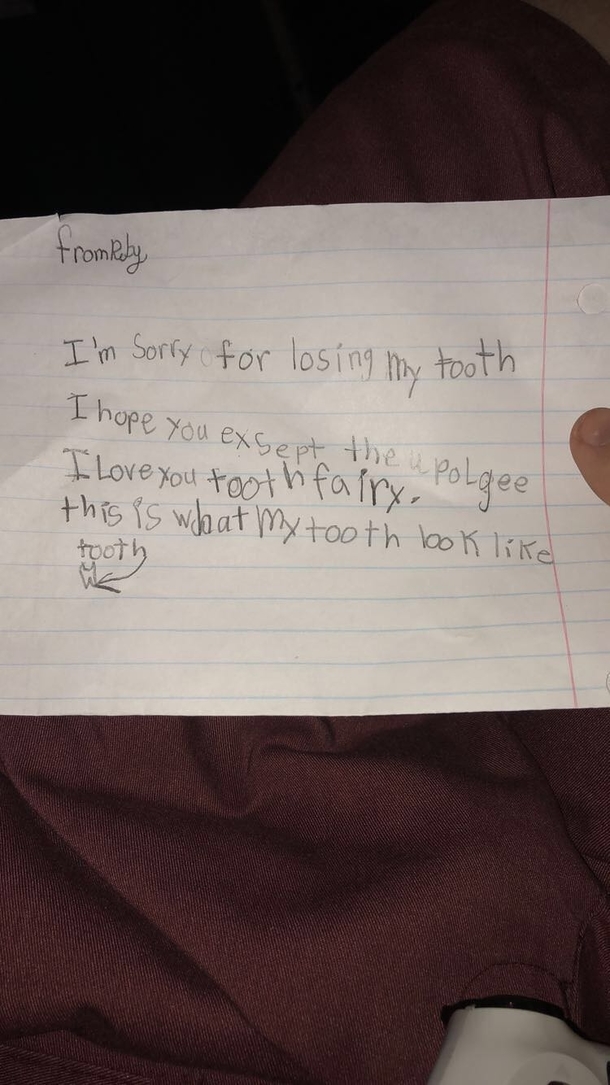 from Ruby
I'm Sorry for losing my tooth
I hope you exsept the upolgee
I Love you tooth fairy.
this is what My tooth look like
tooth